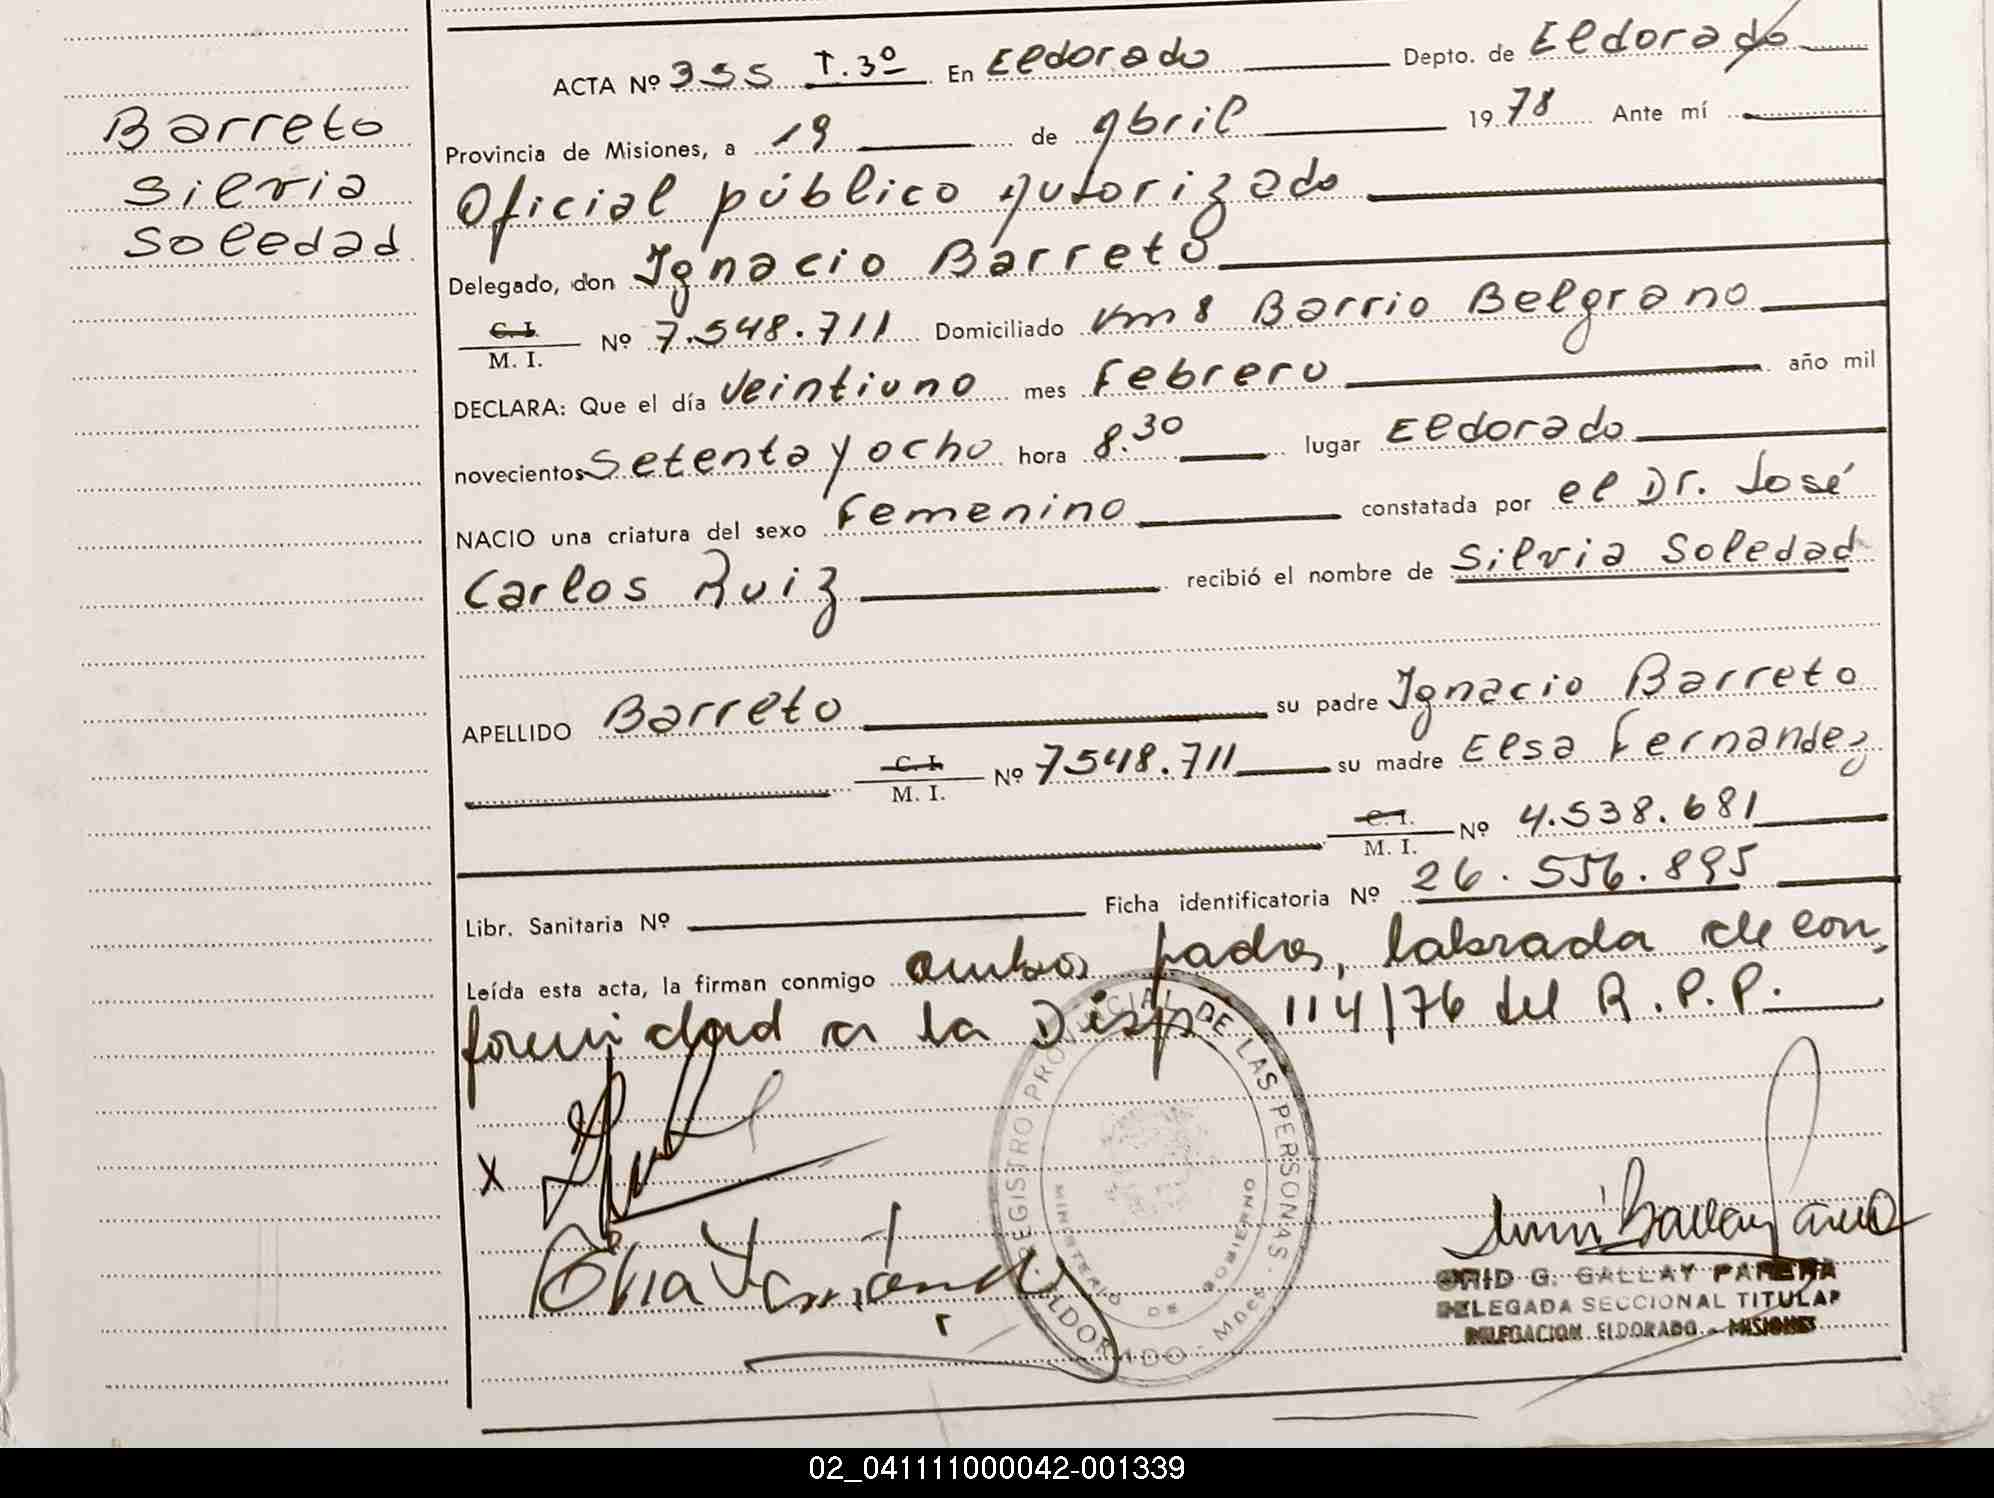 Barreto
Silvia
Soledad
ACTA Nº 355 T.3º En Eldorado Depto. de Eldorado
Provincia de Misiones, a 19 de Abril 1978 Ante mí
Oficial público Autorizado
Delegado, don Ignacio Barreto
C. I.
M. I. Nº 7.548.711 Domiciliado Km 8 Barrio Belgrano
DECLARA: Que el día Veintiuno mes Febrero año mil
novecientos Setenta y ocho hora 8.30 lugar Eldorado
NACIO una criatura del sexo Femenino constatada por el Dr. José
Carlos Ruiz recibió el nombre de Silvia Soledad
APELLIDO Barreto su padre Ignacio Barreto
C. I.
M. I. Nº 7548.711 su madre Elsa Fernandez
C. I.
M. I. Nº 4.538.681
Libr. Sanitaria Nº Ficha identificatoria Nº 26.556.895
Leída esta acta, la firman conmigo ambos padres, labrada de con,
formidad a la Disp 114/76 del R.P.P.
X
REGISTRO PROVINCIAL DE LAS PERSONAS
MINISTERIO DE GOBIERNO
ELDORADO - Mnes.
G. GALLAY PARERA
DELEGADA SECCIONAL TITULAR
DELEGACION ELDORADO - MISIONES
02_041111000042-001339